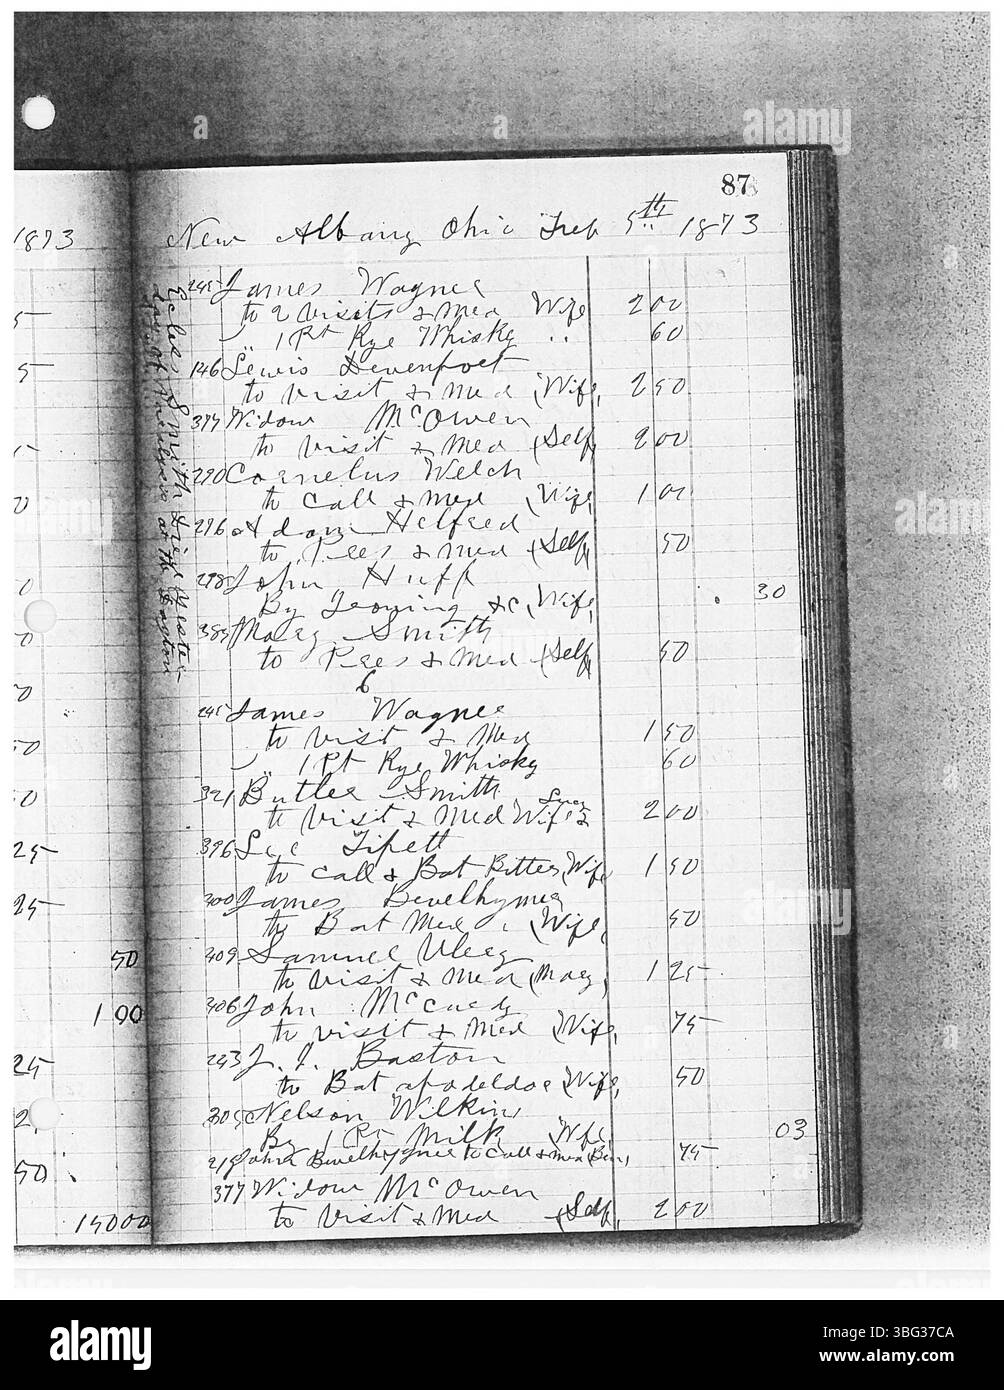 87
1873
New Albany Ohio Feb 5th 1873
245 James Wagner
to 2 visits & Med Wife 2 00
" 1 Pt Rye Whisky " 60
146 Lewis Devenport
to visit & Med (Wife) 2 50
377 Widow McOwen
to visit & Med (Self) 2 00
290 Cornelus Welch
to call & Med (Wife) 1 00
296 Adam Helfred
to Pres & Med (Self) 50
298 John Huff
By &c (Wife) 30
385 Mary Smith
to Pres & Med (Self) 50
6
245 James Wagner
to visit & Med 1 50
" 1 Pt Rye Whisky 60
321 Butler Smith
to visit & Med Wife & 2 00
396 Tipett
to call & Bot Bitters (Wife) 1 50
300 James Bevelhymer
to Bot Med (Wife) 50
309 Samuel Uleey
to visit & Med (Mary) 1 25
306 John McCurdy
to visit & Med (Wife) 75
243 J. J. Baston
to Bot apodeldoc (Wife) 50
305 Nelson Wilkins
By 1 Qt Milk Wife 03
219 John Bevelhymer to Call & Med (Ben) 75
377 Widow McOwen
to visit & Med (Self) 2 00
Smith Died Yester
day at the Dayton
50
1 00
25
25
25
50
15000
a
alamy
alamy
Image ID: 3BG37CA
www.alamy.com